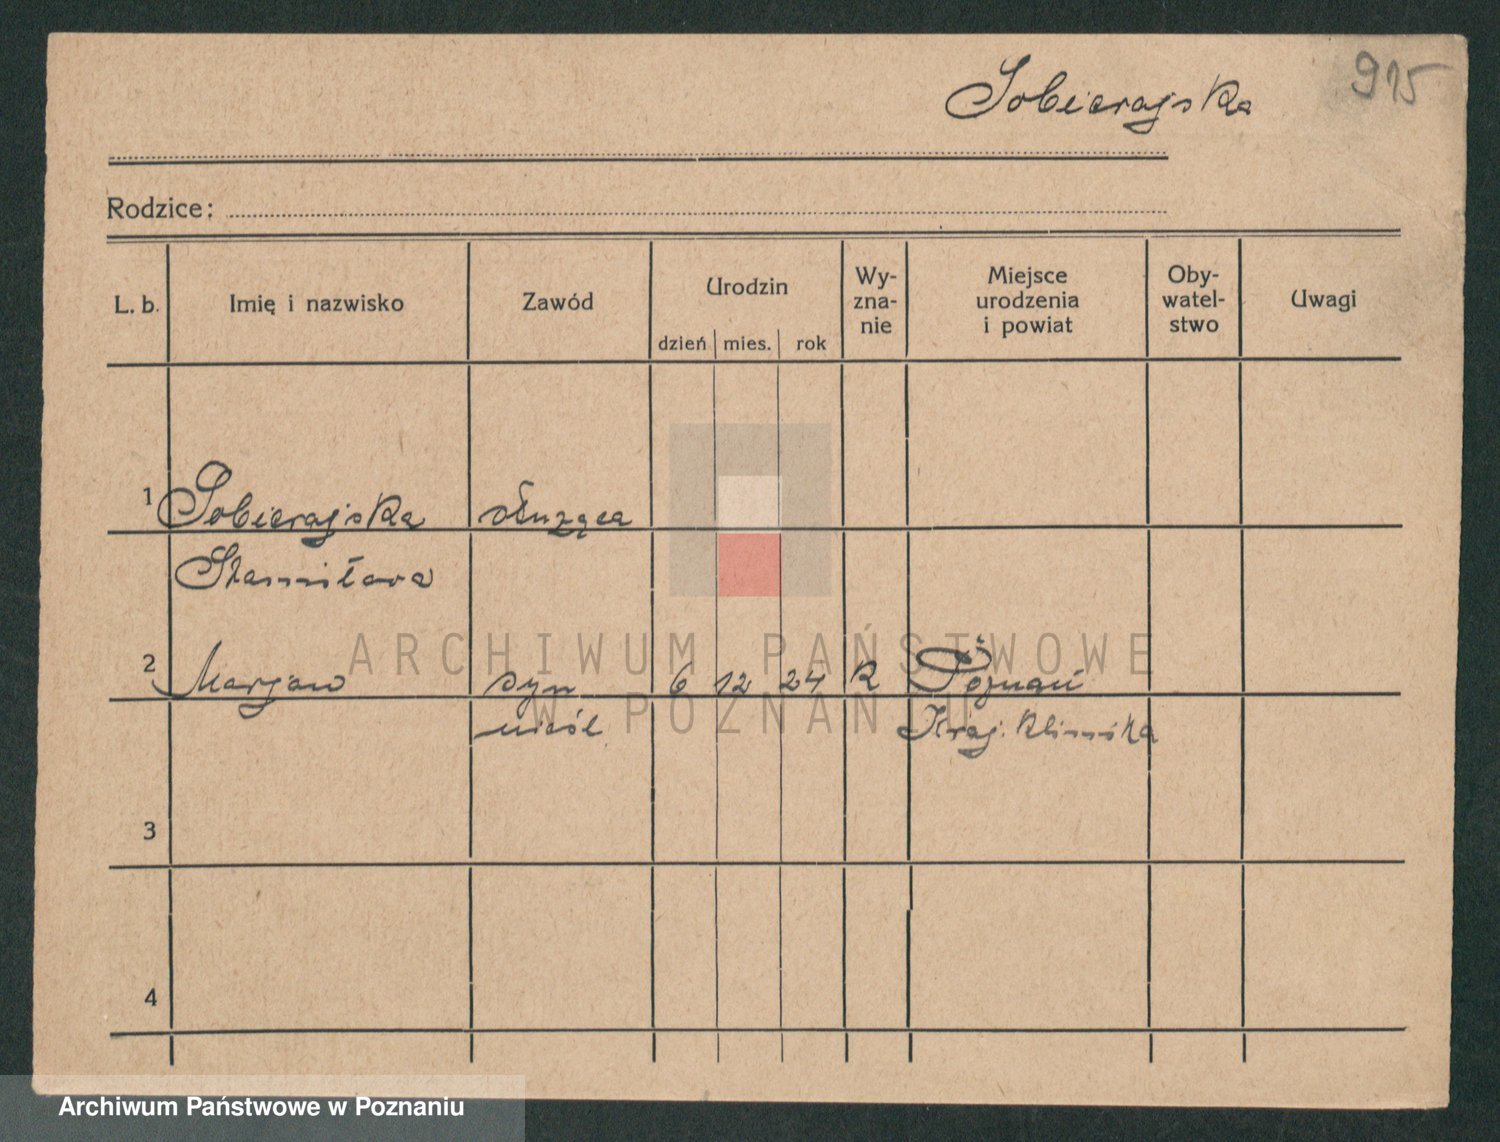 Sobierajska 915
Rodzice:
L. b. Imię i nazwisko Zawód Urodzin dzień mies. rok Wy-zna-nie Miejsce urodzenia i powiat Oby-watel-stwo Uwagi
1 Sobierajska służąca
Stanisława
2 Marjan syn 6 12 24 R Poznań
nieśl. Kraj. Klinika
3
4
ARCHIWUM PAŃSTWOWE
W POZNANIU
Archiwum Państwowe w Poznaniu